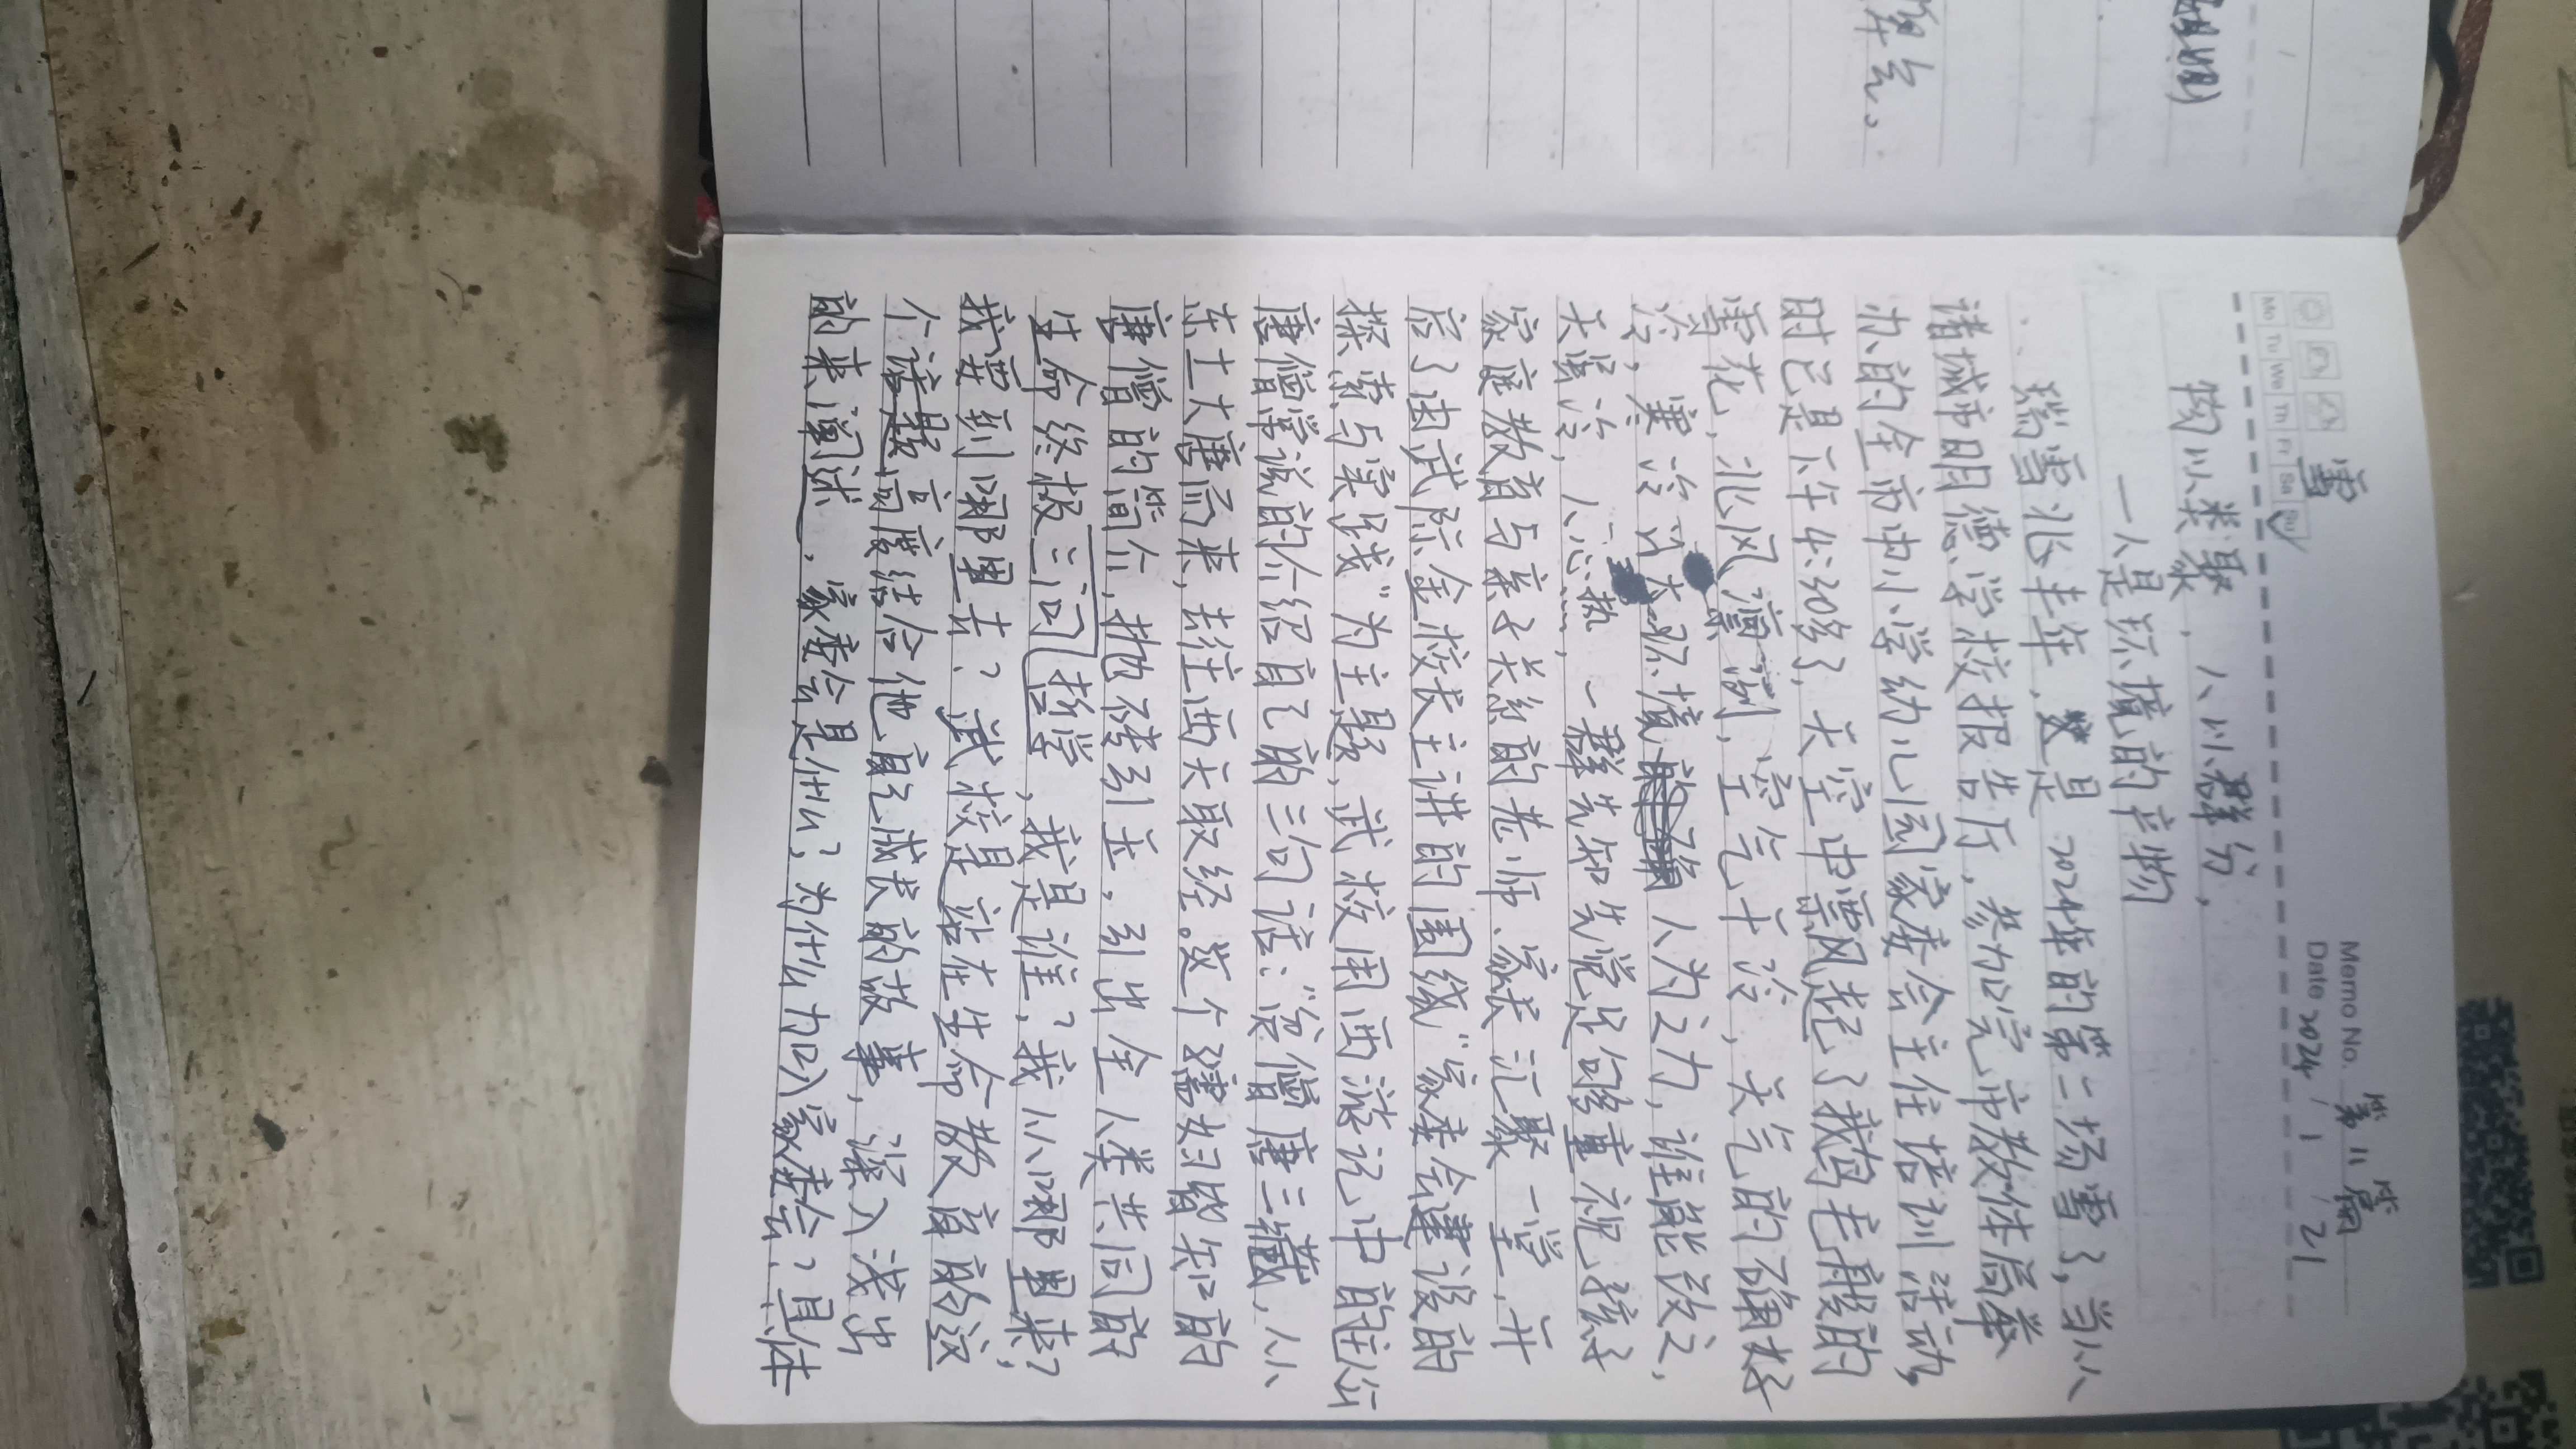 雪
Memo No. 第二篇
Mo Tu We Th Fr Sa Su
Date 2024 / 1 / 21
物以类聚，人以群分，
一人是环境的产物
瑞雪兆丰年，这是2024年的第二场雪了，当从
诸城市明德学校报告厅，参加完市教体局举
办的全市中小学幼儿园家委会主任培训活动，
时已是下午4:30多了，天空中飘起了我鸟毛般的
雪花，北风凛冽，空气干冷，天气的确好
冷，寒冷的大环境 人为之力，谁能改之，
天寒冷，人心热，一群先知先觉能重视孩子
家庭教育与亲子关系的老师、家长汇聚一堂，开
启了由武际金校长主讲的围绕“家委会建设的
探索与实践”为主题，武校用西游记中的
唐僧常说的介绍自己的三句话：“贫僧唐三藏，从
东土大唐而来，去往西天取经。”这个耳熟皆知的
唐僧的简介，抛砖引玉，引出全人类共同的
生命终极三问哲学，我是谁？我从哪里来？
我要到哪里去？武校是站在生命教育的这
个课题高度结合他自己成长的故事，深入浅出
的来阐述，家委会是什么？为什么加入家委会？具体